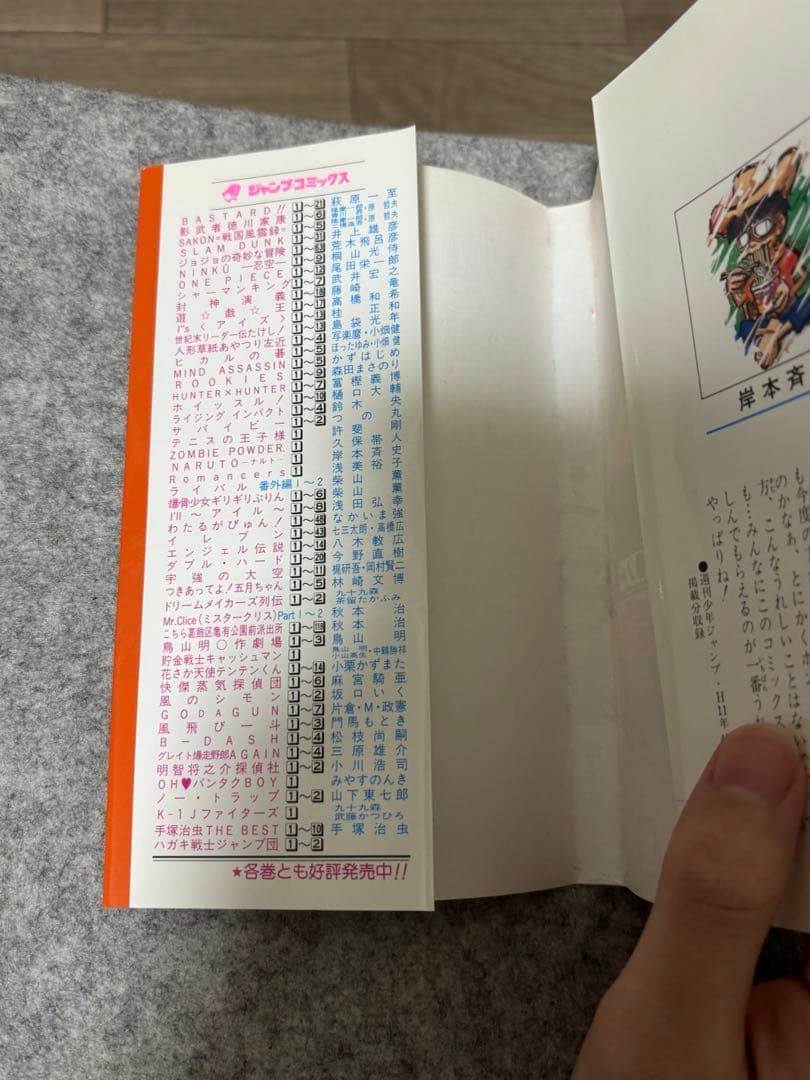 ジャンプ・コミックス
BASTARD!! 1～21 萩原一至
影武者徳川家康 1～6 隆慶一郎・原哲夫
SAKON=戦国風雲録=
SLAM DUNK 井上雄彦
ジョジョの奇妙な冒険 荒木飛呂彦
NINKŪ—忍空— 桐山光侍
ONE PIECE 尾田栄一郎
シャーマンキング 武井宏之
封神演義 藤崎竜
遊☆戯☆王 高橋和希
I"s〈アイズ〉 桂正和
世紀末リーダー伝たけし! 島袋光年
人形草紙あやつり左近 写楽麿・小畑健
ヒカルの碁 ほったゆみ・小畑健
MIND ASSASSIN かずはじめ
ROOKIES 森田まさのり
HUNTER×HUNTER 冨樫義博
ホイッスル! 樋口大輔
ライジング インパクト 鈴木央
サバイビー 1～2 つの丸
テニスの王子様 1 許斐剛
ZOMBIE POWDER. 1 久保帯人
NARUTO—ナルト— 1 岸本斉史
Romancers 1 浅美裕子
ライバル 番外編1～2 柴山薫
爆骨少女ギリギリぷりん 1～6 柴山薫
I'll～アイル～ 1～8 浅田弘幸
わたるがぴゅん! 1～48 なかいま強
イレブン 1～43 七三太朗・高橋広
エンジェル伝説 1～14 八木教広
ダブル・ハード 1～20 今野直樹
宇強の大空 1～11 梶研吾・岡村賢二
つきあってよ!五月ちゃん 1～5 林崎文博
ドリームメイカーズ列伝 1～2 九十九森 茶留たかふみ
Mr.Clice(ミスタークリス) Part1～2 秋本治
こちら葛飾区亀有公園前派出所 1～118 秋本治
鳥山明○作劇場 1～3 鳥山明
貯金戦士キャッシュマン 1 鳥山明・中鶴勝祥 小山高生
花さか天使テンテンくん 1～14 小栗かずまた
快傑蒸気探偵団 1～6 麻宮騎亜
風のシモン 1～2 坂口いく
GODAGUN 1～7 片倉・M・政憲
風飛び一斗 1～3 門馬もとき
B-DASH 1～4 松枝尚嗣
グレイト爆走野郎AGAIN 1～4 三原雄介
明智将之介探偵社 1～2 小川浩司
OH♥バンタクBOY 1 みやすのんき
ノー・トラップ 1～2 山下東七郎
K-1Jファイターズ 1 九十九森 武藤かつひろ
手塚治虫THE BEST 1～10 手塚治虫
ハガキ戦士ジャンプ団 1～2
★各巻とも好評発売中!!
岸本斉
のかなぁ、とにかく
方、こんなうれしいことはない
も…みんなにこのコミックス
しんでもらえるのが一番う
やっぱりね!
●週刊少年ジャンプ・H11年
掲載分収録